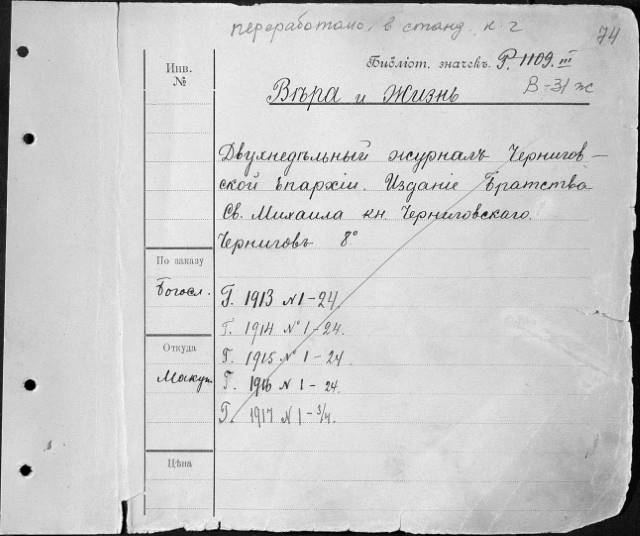 переработано в станд. к. г
74
Инв. №
Библіот. значекъ. Р. 1109. III
В-31 ж
Вѣра и Жизнь
Двухнедѣльный журналъ Чернигов-
ской Епархіи. Изданіе Братства
Св. Михаила кн. Черниговскаго.
Черниговъ 8°
По заказу
Богосл.
Г. 1913 № 1-24.
Г. 1914 № 1-24.
Откуда
Г. 1915 № 1-24
Макуш.
Г. 1916 № 1-24.
Г. 1917 № 1-3/4.
Цѣна